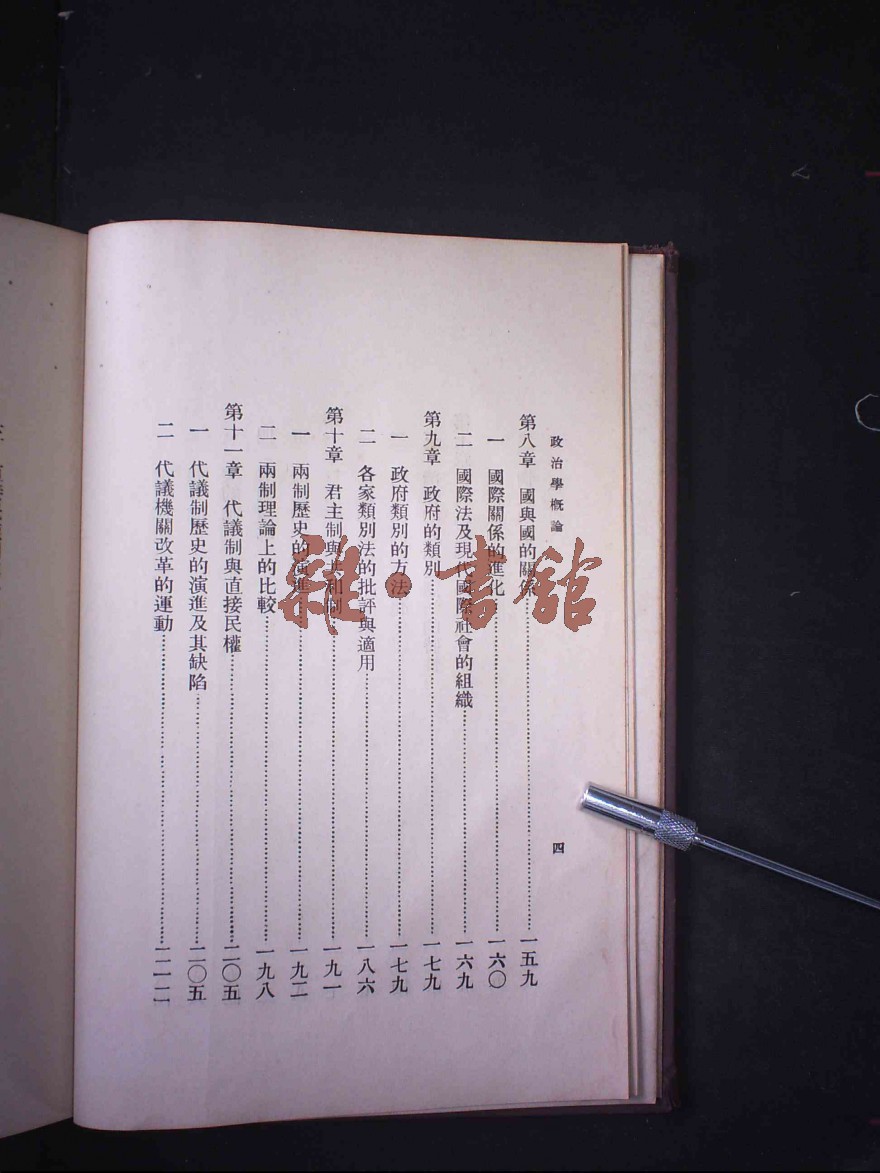 政治學概論
四
第八章 國與國的關係……一五九
一 國際關係的進化……一六〇
二 國際法及現代國際社會的組織……一六九
第九章 政府的類別……一七九
一 政府類別的方法……一七九
二 各家類別法的批評與適用……一八六
第十章 君主制與共和制……一九一
一 兩制歷史的演進……一九二
二 兩制理論上的比較……一九八
第十一章 代議制與直接民權……二〇五
一 代議制歷史的演進及其缺陷……二〇五
二 代議機關改革的運動……二一二
雜·書館